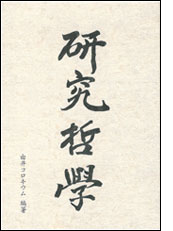 研究哲學
白井コロキウム 編著